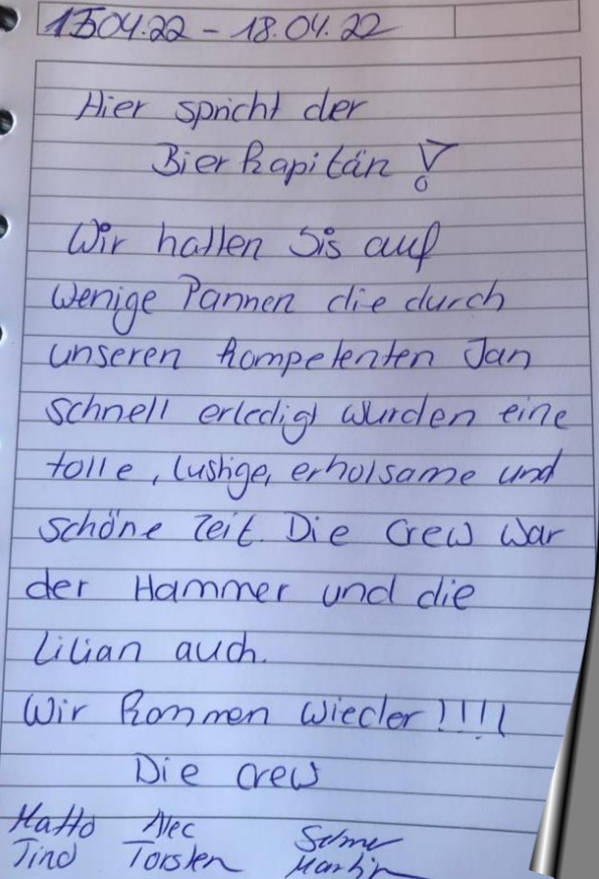 15.04.22 - 18.04.22
Hier spricht der
Bierkapitän !
Wir hatten Sis auf
wenige Pannen die durch
unseren kompetenten Jan
schnell erledigt wurden eine
tolle, lustige, erholsame und
schöne Zeit. Die Crew war
der Hammer und die
Lilian auch.
Wir kommen wieder !!!!
Die Crew
Alec
Tino Torsten Martin